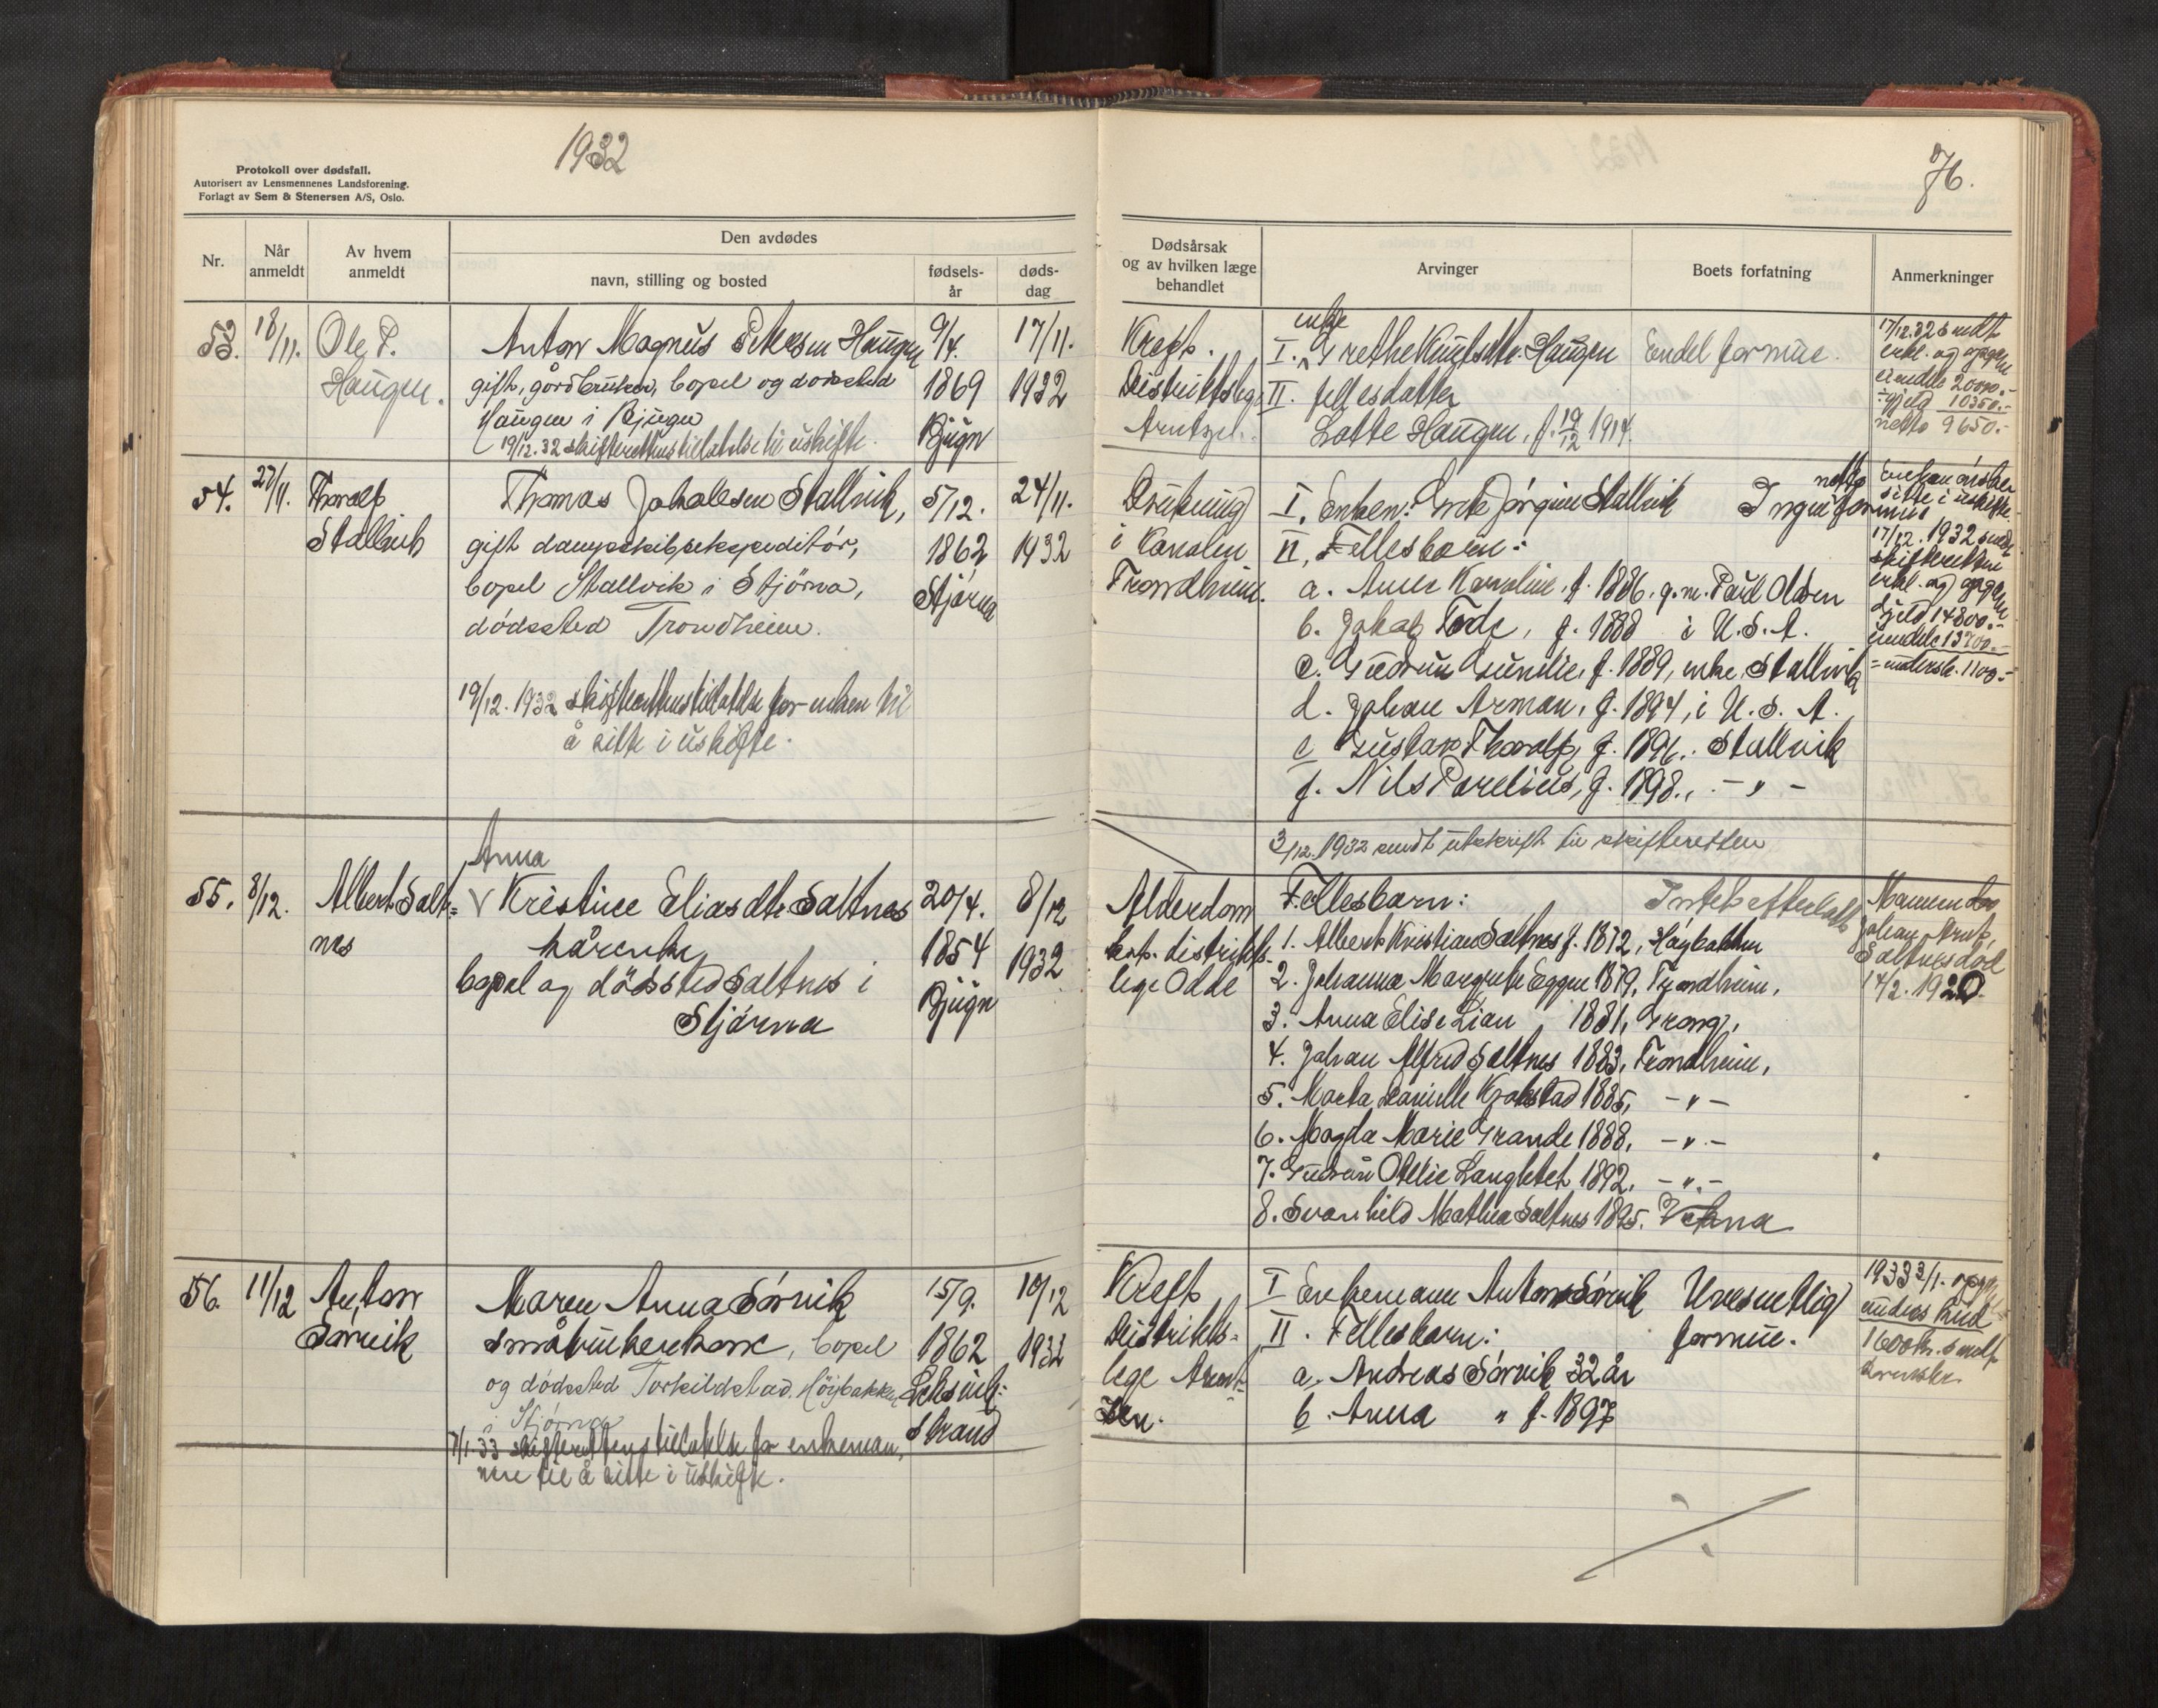 1932
76.
Protokoll over dødsfall.
Autorisert av Lensmennenes Landsforening.
Forlagt av Sem & Stenersen A/S, Oslo.
Nr.
Når anmeldt
Av hvem anmeldt
Den avdødes
navn, stilling og bosted
fødsels-år
døds-dag
Dødsårsak og av hvilken læge behandlet
Arvinger
Boets forfatning
Anmerkninger
53. 18/11. Ole P. Haugen.
Anton Magnus Petersen Haugen
gift, gårdbruker, bopel og dødssted
Haugen i Bjugn
19/12.32 skifterettens tillatelse til uskifte.
9/4. 1869 Bjugn
17/11. 1932
Kreft.
Distriktslege
Arntzen.
enke
I. Grethe Knutsdtr. Haugen
II. fellesdatter
Lotte Haugen, f. 19/12 1914.
Endel formue.
17/12.32 sendt
erkl. og opgave
eiendele 20000.-
÷ gjeld 10350.-
netto 9650.-
54. 27/11. Thoralf Stallvik
Thomas Jakobsen Stallvik,
gift dampskibsekspeditör,
bopel Stallvik i Stjörna,
dödssted Trondheim.
19/12.1932 skifterettens tillatelse for enken til
å sitte i uskifte.
5/12. 1862 Stjørna
24/11. 1932
Drukning
i Kanalen
Trondheim.
I. Enken: Jørgine Stallvik
II. Fellesbarn:
a. Anne Karoline, f. 1886. g.m. Paul Olsen
b. Jakob Tode, f. 1888 i U.S.A.
c. Gudrun Gunelie, f. 1889, enke, Stallvik
d. Johan Arman, f. 1894, i U.S.A.
e. Gustav Thoralf, f. 1896. Stallvik
f. Nils Parelius, f. 1898., - " -
netto
Ingen formue
Enken ønsker
sitte i uskifte.
17/12.1932 sendt
skifteretten
erkl. og opgave
Gjeld 14800.-
eiendele 13700.-
= undersk. 1100.-
3/12.1932 sendt utskrift til skifteretten
55. 8/12. Albert Salt=
nes
Anna
√ Kristine Eliasdtr. Saltnes
kårenke
bopel og dödssted Saltnes i
Stjørna
20/4. 1854 Bjugn
8/12 1932
Alderdom
distrikts-
lege Odde
Fellesbarn:
1. Albert Kristian Saltnes f. 1872, Høybakken
2. Johanna Margrethe Eggen 1879, Trondheim,
3. Anna Elise Lian 1881, Grong,
4. Johan Alfred Saltnes 1883, Trondheim,
5. Marta Danielle Krokstad 1885, - " -
6. Magda Marie Grande 1888, - " -
7. Gudrun Otelie Langletet 1892, - " -
8. Svanhild Mathea Saltnes 1895.
Intet efterlatt
Mannen
Johan Arnt
Saltnes død
14/2.1920.
56. 11/12 Anton
Sørvik
Maren Anna Sørvik
småbrukerkone, bopel
og dødssted Torkildstad, Høybakken
i Stjørna
7/1-33 skifterettens tillatelse for enkeman,
nen til å sitte i uskifte.
15/9. 1862 Leksvik:
strand
10/12 1932
Kreft
Distrikts=
lege Arnt-
zen.
I Enkemann Anton Sørvik
II. Fellesbarn:
a. Andreas Sørvik 32 år
b. Anna " f. 1897
Uvesentlig
formue.
1933 3/1.
1600 kr. sendt